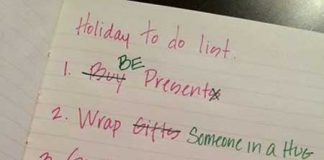 Holiday to do list.
1. Buy BE Presents
2. Wrap Gifts Someone in a Hug
3.